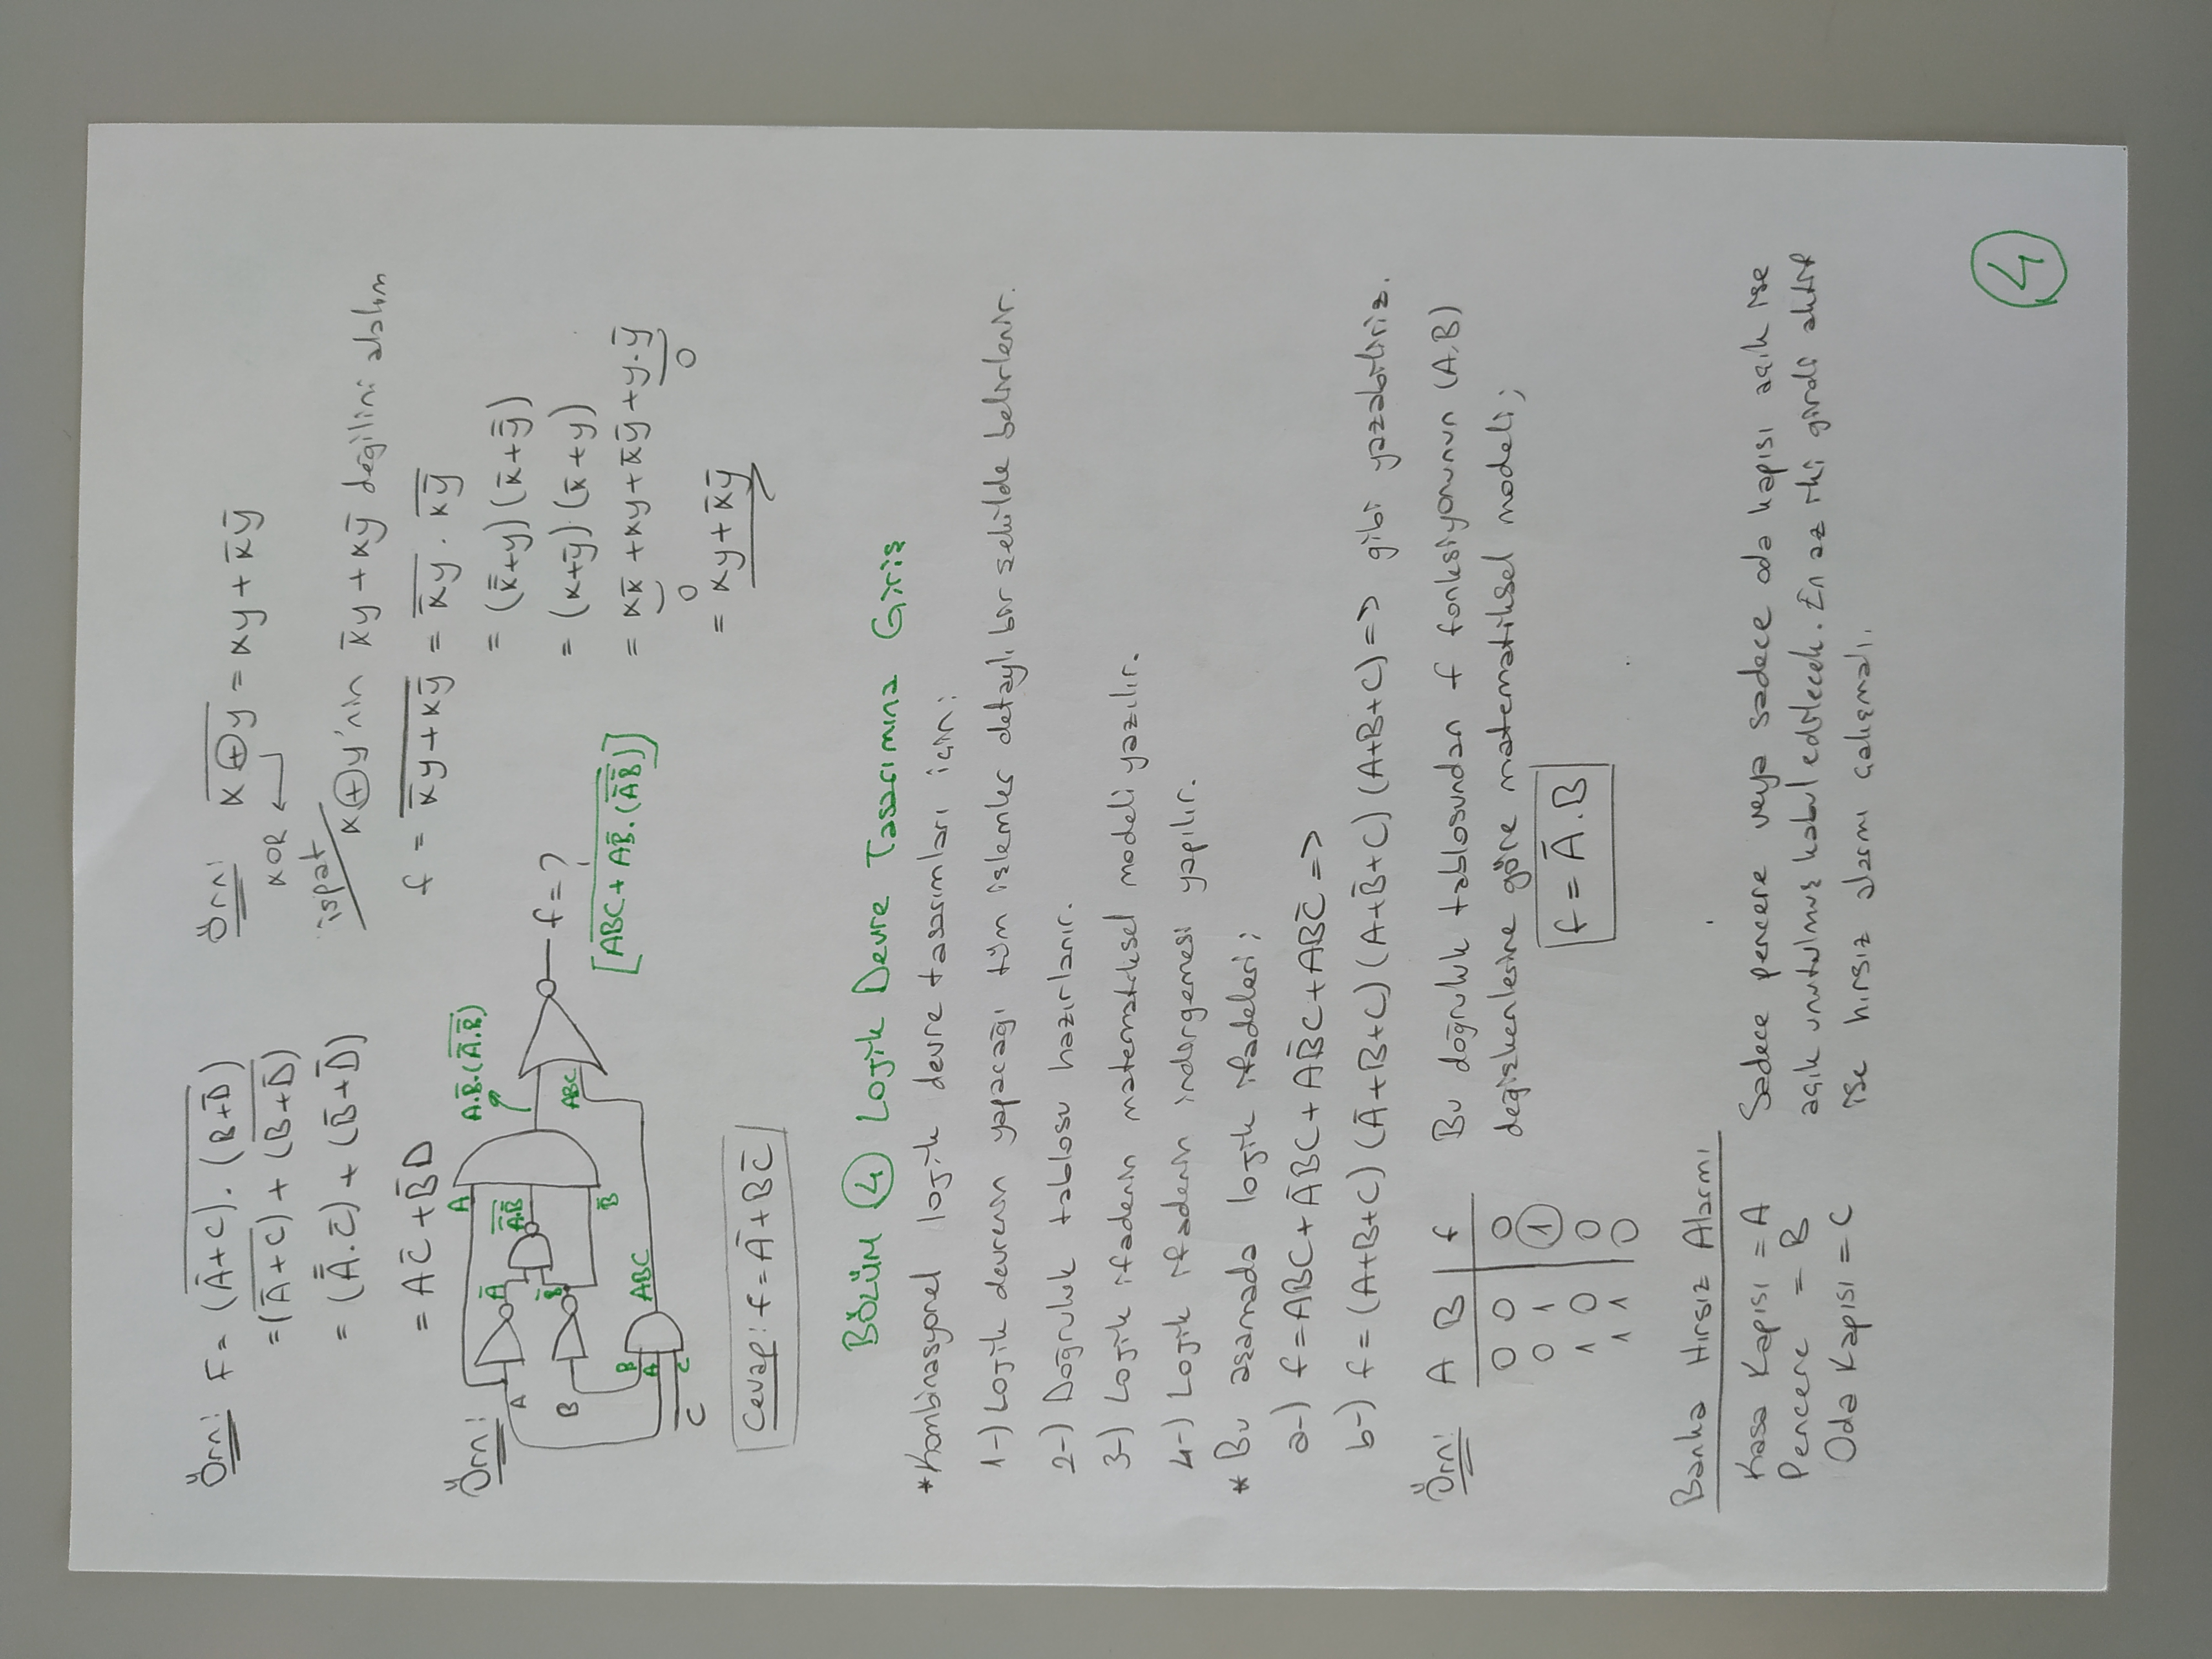 Örn: F = \overline{(Ā+C).(B+D̄)}
= \overline{(Ā+C)} + \overline{(B+D̄)}
= (A̿.C̄) + (B̄+D̿)
= AC̄ + B̄D
Örn: \overline{x⊕y} = xy + x̄ȳ
XOR
ispat
x⊕y'nin x̄y + xȳ değilini alalım
f = \overline{x̄y+xȳ} = \overline{x̄y} . \overline{xȳ}
= (x̿+y)(x̄+y̿)
= (x+ȳ)(x̄+y)
= xx̄ + xy + x̄ȳ + y.ȳ
0 0
= xy + x̄ȳ
Örn:
A Ā A \overline{Ā.B̄} A.B̄.(\overline{Ā.B̄})
B B̄ B̄ ABC f = ?
[\overline{ABC + AB̄.(\overline{ĀB̄})}]
B
A
C ABC
C
Cevap: f = Ā + BC̄
BÖLÜM 4 Lojik Devre Tasarımına Giriş
*Kombinasyonel lojik devre tasarımları için:
1-) Lojik devrenin yapacağı tüm işlemler detaylı bir şekilde belirlenir.
2-) Doğruluk tablosu hazırlanır.
3-) Lojik ifadenin matematiksel modeli yazılır.
4-) Lojik ifadenin indirgemesi yapılır.
* Bu aşamada lojik ifadeleri;
a-) f = ABC + ĀBC + AB̄C + ABC̄ =>
b-) f = (A+B+C) (Ā+B+C) (A+B̄+C) (A+B+C) => gibi yazabiliriz.
Örn: A B f
0 0 0
0 1 1
1 0 0
1 1 0
Bu doğruluk tablosundan f fonksiyonunun (A,B)
değişkenlerine göre matematiksel modeli;
f = Ā.B
Banka Hırsız Alarmı
Kasa Kapısı = A
Pencere = B
Oda Kapısı = C
Sadece pencere veya sadece oda kapısı açık ise
açık unutulmuş kabul edilecek. En az iki girdi aktif
ise hırsız alarmı çalışmalı.
4